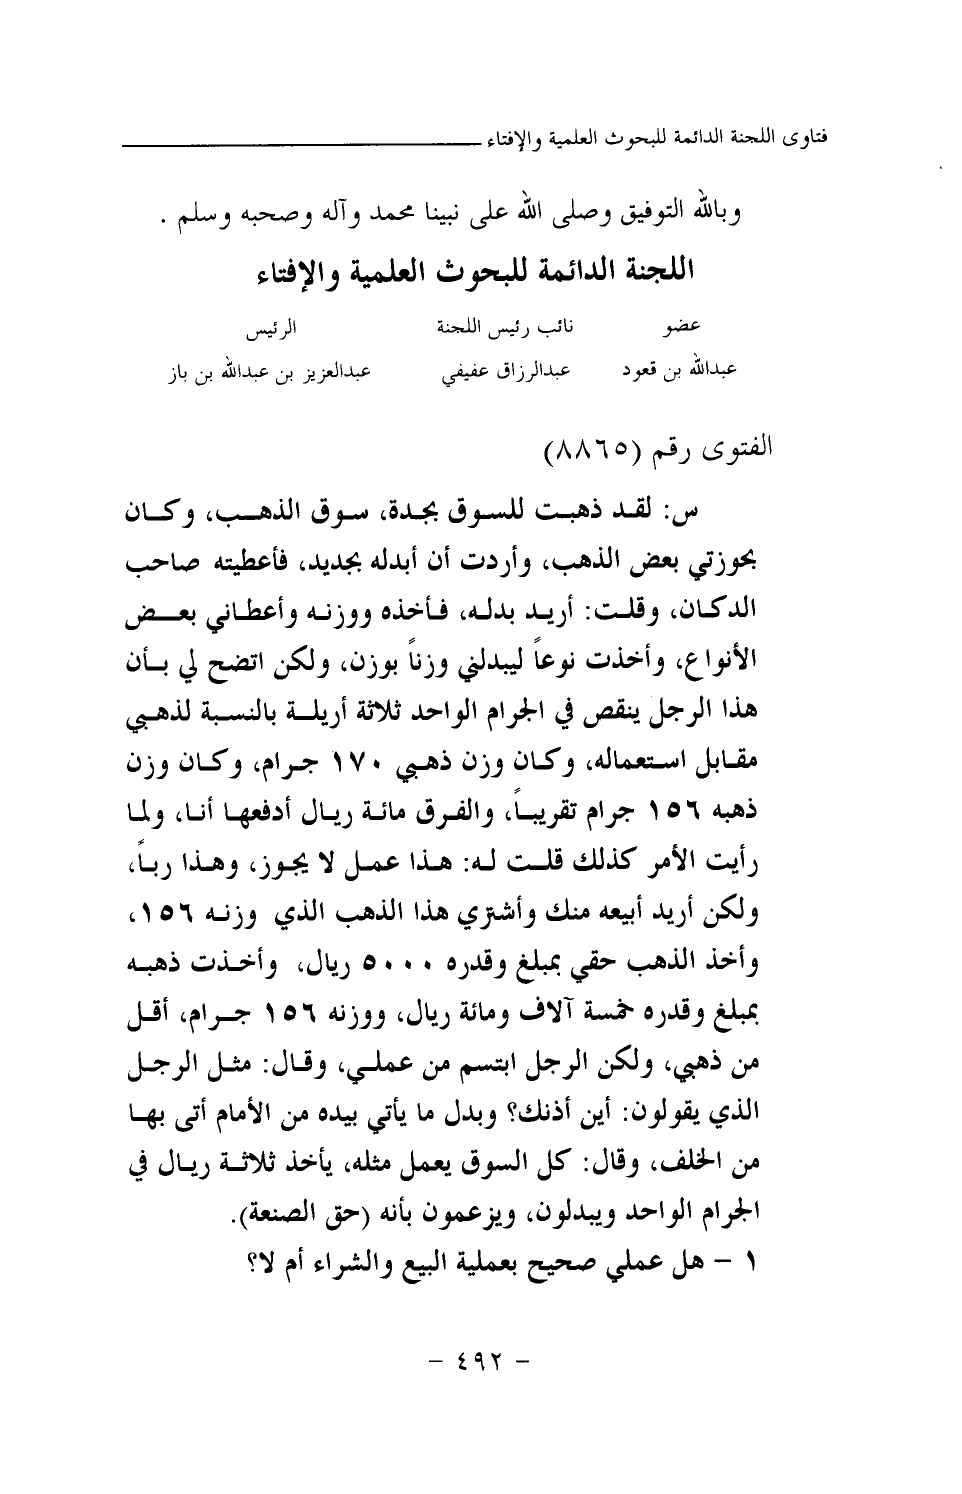 فتاوى اللجنة الدائمة للبحوث العلمية والإفتاء
وبالله التوفيق وصلى الله على نبينا محمد وآله وصحبه وسلم .
اللجنة الدائمة للبحوث العلمية والإفتاء
عضو نائب رئيس اللجنة الرئيس
عبدالله بن قعود عبدالرزاق عفيفي عبدالعزيز بن عبدالله بن باز
الفتوى رقم (٨٨٦٥)
س: لقد ذهبت للسوق بجدة، سوق الذهب، وكان
بحوزتي بعض الذهب، وأردت أن أبدله بجديد، فأعطيته صاحب
الدكان، وقلت: أريد بدله، فأخذه ووزنه وأعطاني بعض
الأنواع، وأخذت نوعاً ليبدلني وزناً بوزن، ولكن اتضح لي بأن
هذا الرجل ينقص في الجرام الواحد ثلاثة أريلة بالنسبة لذهبي
مقابل استعماله، وكان وزن ذهبي ١٧٠ جرام، وكان وزن
ذهبه ١٥٦ جرام تقريباً، والفرق مائة ريال أدفعها أنا، ولما
رأيت الأمر كذلك قلت له: هذا عمل لا يجوز، وهذا رباً،
ولكن أريد أبيعه منك وأشتري هذا الذهب الذي وزنه ١٥٦،
وأخذ الذهب حقي بمبلغ وقدره ٥٠٠٠ ريال، وأخذت ذهبه
بمبلغ وقدره خمسة آلاف ومائة ريال، ووزنه ١٥٦ جرام، أقل
من ذهبي، ولكن الرجل ابتسم من عملي، وقال: مثل الرجل
الذي يقولون: أين أذنك؟ وبدل ما يأتي بيده من الأمام أتى بها
من الخلف، وقال: كل السوق يعمل مثله، يأخذ ثلاثة ريال في
الجرام الواحد ويبدلون، ويزعمون بأنه (حق الصنعة).
١ – هل عملي صحيح بعملية البيع والشراء أم لا؟
– ٤٩٢ –